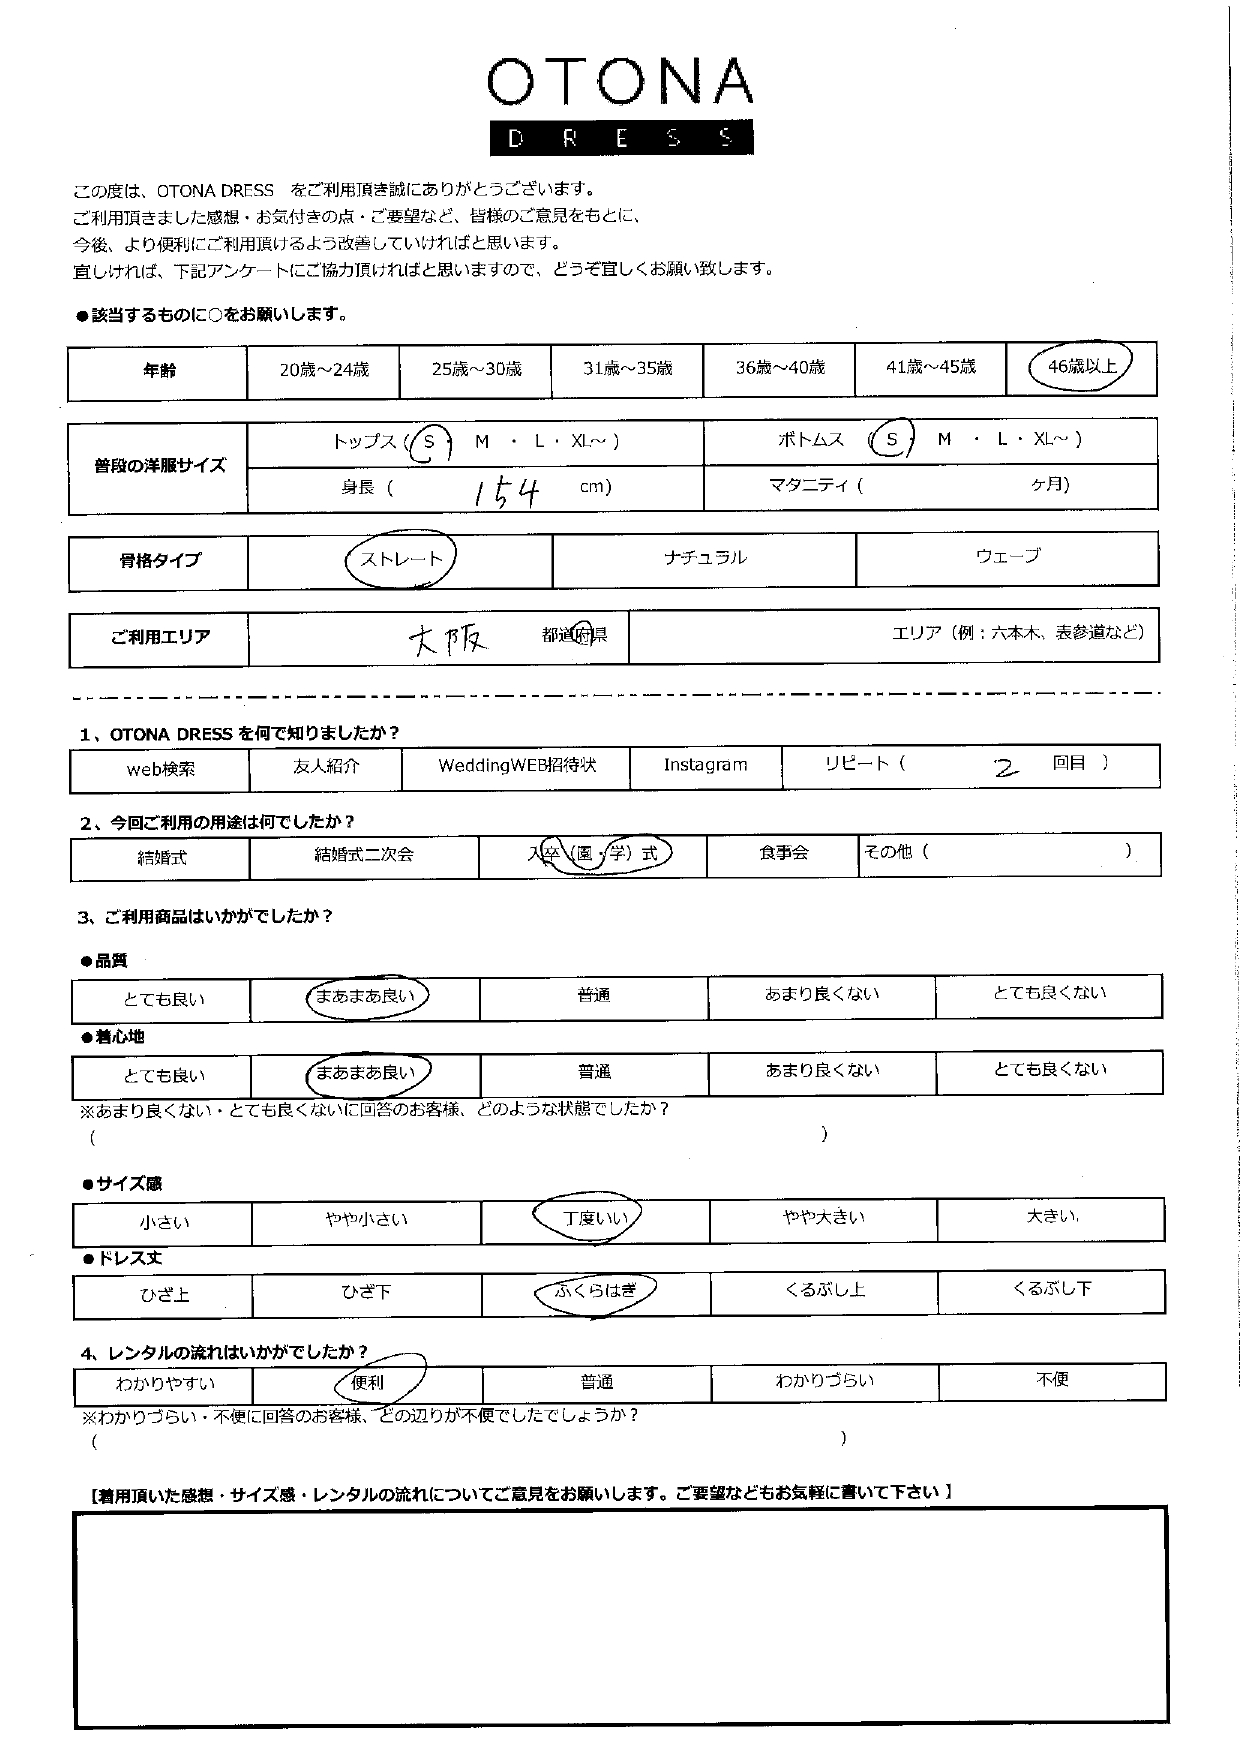 OTONA
DRESS
この度は、OTONA DRESS　をご利用頂き誠にありがとうございます。
ご利用頂きました感想・お気付きの点・ご要望など、皆様のご意見をもとに、
今後、より便利にご利用頂けるよう改善していければと思います。
宜しければ、下記アンケートにご協力頂ければと思いますので、どうぞ宜しくお願い致します。
●該当するものに○をお願いします。
年齢 20歳～24歳 25歳～30歳 31歳～35歳 36歳～40歳 41歳～45歳 46歳以上
普段の洋服サイズ トップス（ S ・ M ・ L ・ XL～ ） ボトムス （ S ・ M ・ L ・ XL～ ）
身長（ 154 cm） マタニティ（ ヶ月）
骨格タイプ ストレート ナチュラル ウェーブ
ご利用エリア 大阪 都道府県 エリア（例：六本木、表参道など）
1、OTONA DRESS を何で知りましたか？
web検索 友人紹介 WeddingWEB招待状 Instagram リピート（ 2 回目 ）
2、今回ご利用の用途は何でしたか？
結婚式 結婚式二次会 入卒（園・学）式 食事会 その他（ ）
3、ご利用商品はいかがでしたか？
●品質
とても良い まあまあ良い 普通 あまり良くない とても良くない
●着心地
とても良い まあまあ良い 普通 あまり良くない とても良くない
※あまり良くない・とても良くないに回答のお客様、どのような状態でしたか？
（ ）
●サイズ感
小さい やや小さい 丁度いい やや大きい 大きい
●ドレス丈
ひざ上 ひざ下 ふくらはぎ くるぶし上 くるぶし下
4、レンタルの流れはいかがでしたか？
わかりやすい 便利 普通 わかりづらい 不便
※わかりづらい・不便に回答のお客様、どの辺りが不便でしたでしょうか？
（ ）
【着用頂いた感想・サイズ感・レンタルの流れについてご意見をお願いします。ご要望などもお気軽に書いて下さい 】